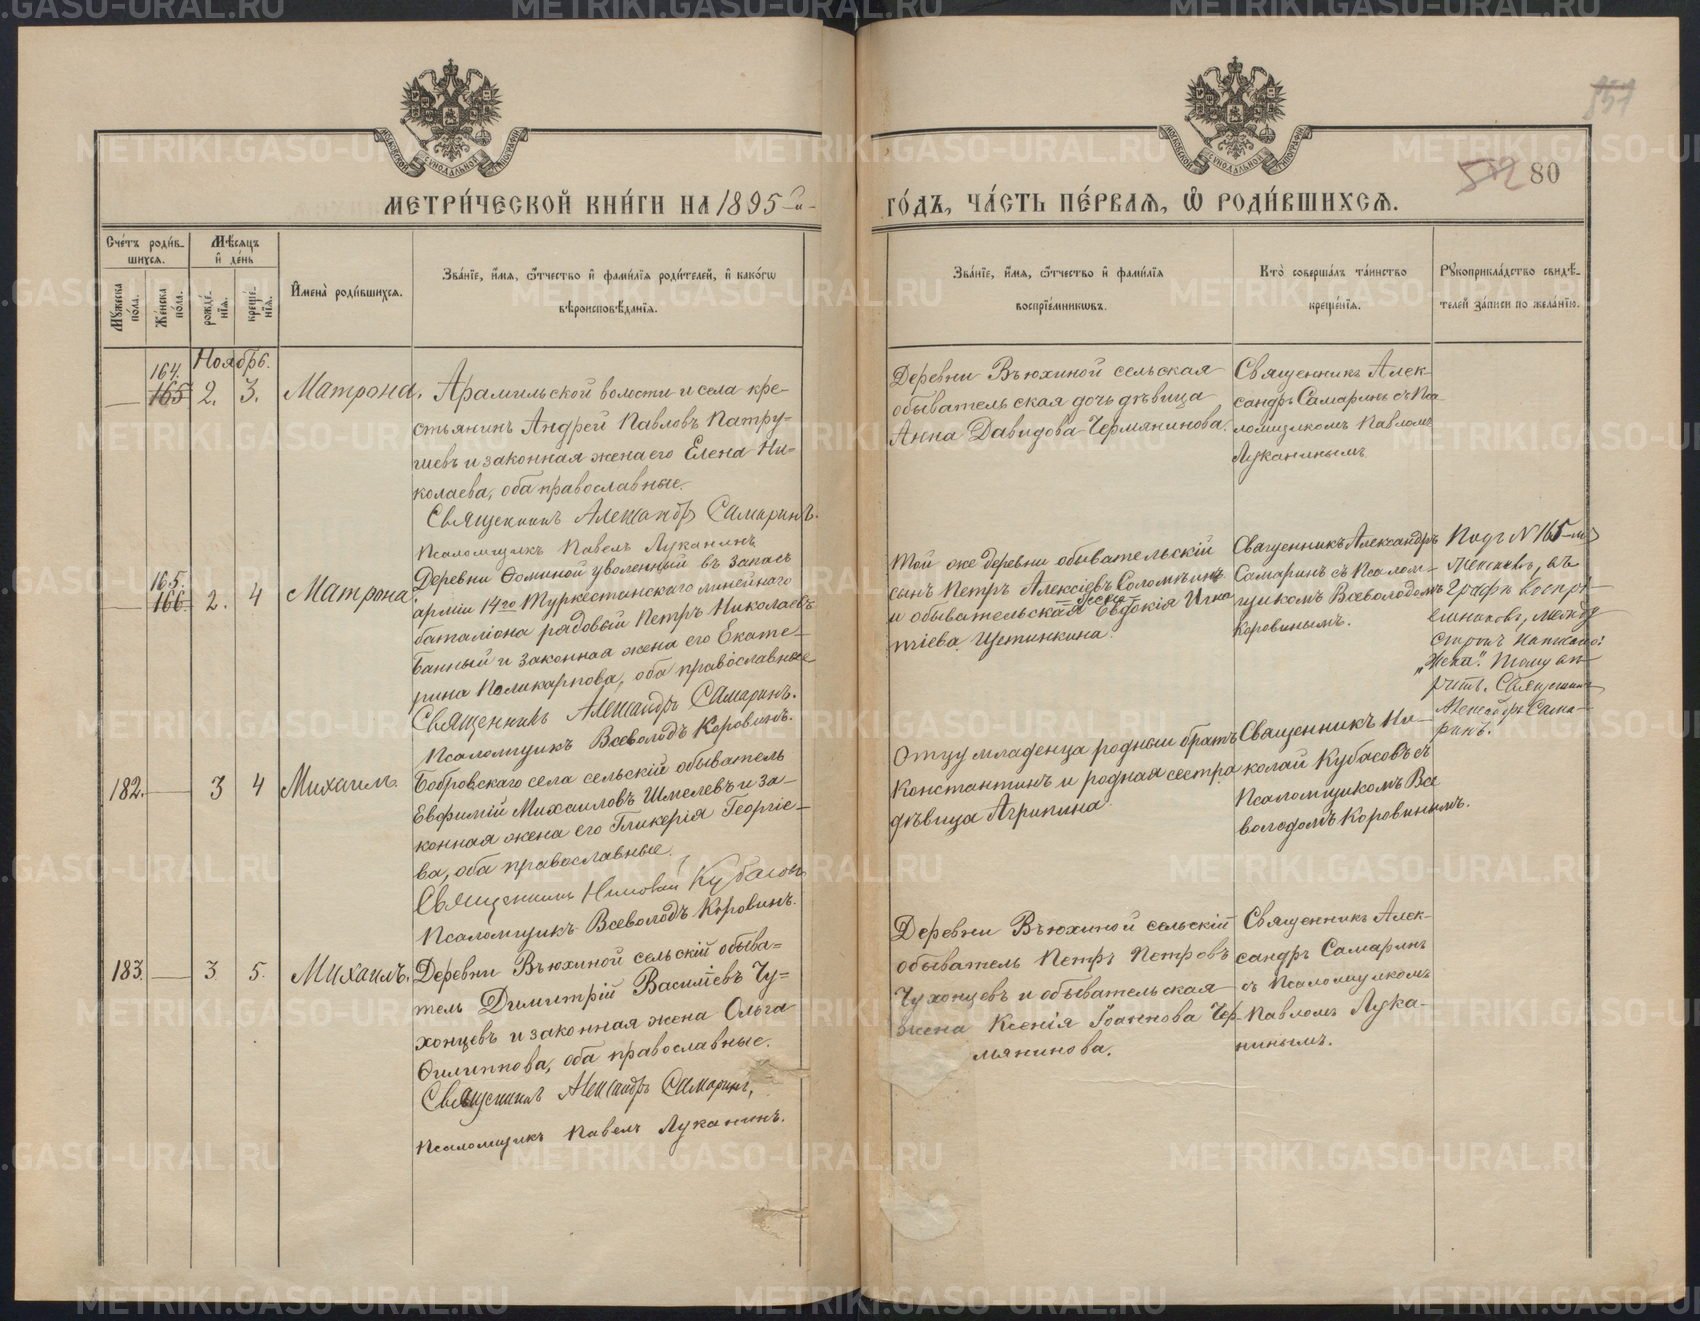 METRIKI.GASO-URAL.RU
151
МЕТРИ́ЧЕСКОЙ КНИ́ГИ НА 1895-й
ГО́ДЪ, ЧА́СТЬ ПЕ́РВАѦ, Ѽ РОДИ́ВШИХСѦ.
512 80
Сче́тъ роди́в-
шихсѧ.
Мꙋжеска по́ла.
Же́нска по́ла.
Мѣ́сѧцъ
и҆ де́нь
рожде́-
нїѧ.
креще́-
нїѧ.
И҆мена̀ роди́вшихсѧ.
Зва́нїе, и҆́мѧ, ѻ҆́тчество и҆ фами́лїѧ роди́телей, и҆ како́гѡ
вѣроисповѣ́данїѧ.
Зва́нїе, и҆́мѧ, ѻ҆́тчество и҆ фами́лїѧ
воспрїе́мниковъ.
Кто̀ соверша́лъ та́инство
креще́нїѧ.
Рꙋкоприкла́дство свидѣ́-
телей за́писи по жела́нїю.
Ноябрь.
164.
165 2. 3. Матрона.
Арамильской волости и села кре-
стьянинъ Андрей Павловъ Патру-
шевъ и законная жена его Елена Ни-
колаева, оба православные.
Священникъ Александръ Самаринъ.
Псаломщикъ Павелъ Луканинъ
Деревни Вьюхиной сельская
обывательская дочь дѣвица
Анна Давидова Чермянинова.
Священникъ Алек-
сандръ Самаринъ съ Пса-
ломщикомъ Павломъ
Луканинымъ
165.
166. 2. 4 Матрона.
Деревни Ѳоминой уволенный въ запасъ
арміи 14го Туркестанскаго линейнаго
баталіона рядовый Петръ Николаевъ
Банный и законная жена его Екате-
рина Поликарпова, оба православные
Священникъ Александръ Самаринъ.
Псаломщикъ Всеволодъ Коровинъ.
Той же деревни обывательскій
сынъ Петръ Алексіевъ Соломеинъ
жена
и обывательская Евдокія Игна
тіева Щетинкина.
Священникъ Александръ
Самаринъ съ Псалом-
щикомъ Всеволодомъ
Коровинымъ.
Подъ № 165-мъ
женскомъ, въ
графѣ воспрі-
емниковъ, между
строкъ написано:
„жена". Тому вѣ-
рить. Священникъ
Александръ Сама-
ринъ.
182. 3 4 Михаилъ.
Бобровскаго села сельскій обыватель
Евфимій Михаиловъ Шмелевъ и за-
конная жена его Гликерія Георгіе-
ва, оба православные.
Священникъ Николай Кубасовъ
Псаломщикъ Всеволодъ Коровинъ.
Отцу младенца родный братъ
Константинъ и родная сестра
дѣвица Агрипина
Священникъ Ни-
колай Кубасовъ съ
Псаломщикомъ Все
володомъ Коровинымъ.
183. 3. 5. Михаилъ.
Деревни Вьюхиной сельскій обыва-
тель Димитрій Василіевъ Чу-
хонцевъ и законная жена Ольга
Филиппова, оба православные.
Священникъ Александръ Самаринъ,
Псаломщикъ Павелъ Луканинъ.
Деревни Вьюхиной сельскій
обыватель Петръ Петровъ
Чухонцевъ и обывательская
жена Ксенія Іоаннова Чер-
мянинова.
Священникъ Алек-
сандръ Самаринъ
съ Псаломщикомъ
Павломъ Лука-
нинымъ.